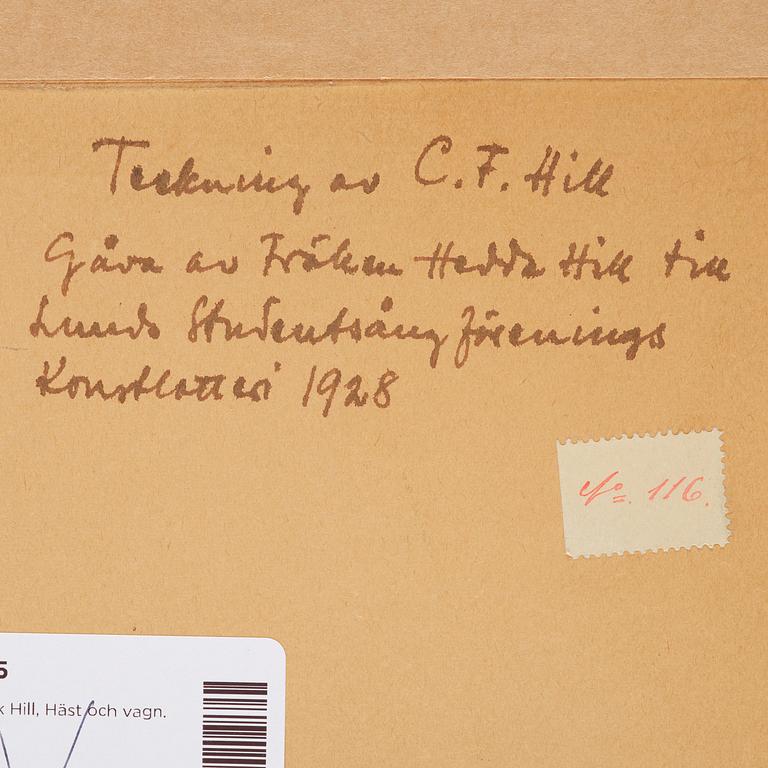 Teckning av C.F. Hill
Gåva av Fröken Hedda Hill till
Lunds Studentsångförenings
Konstlotteri 1928
No. 116.
5
k Hill, Häst och vagn.